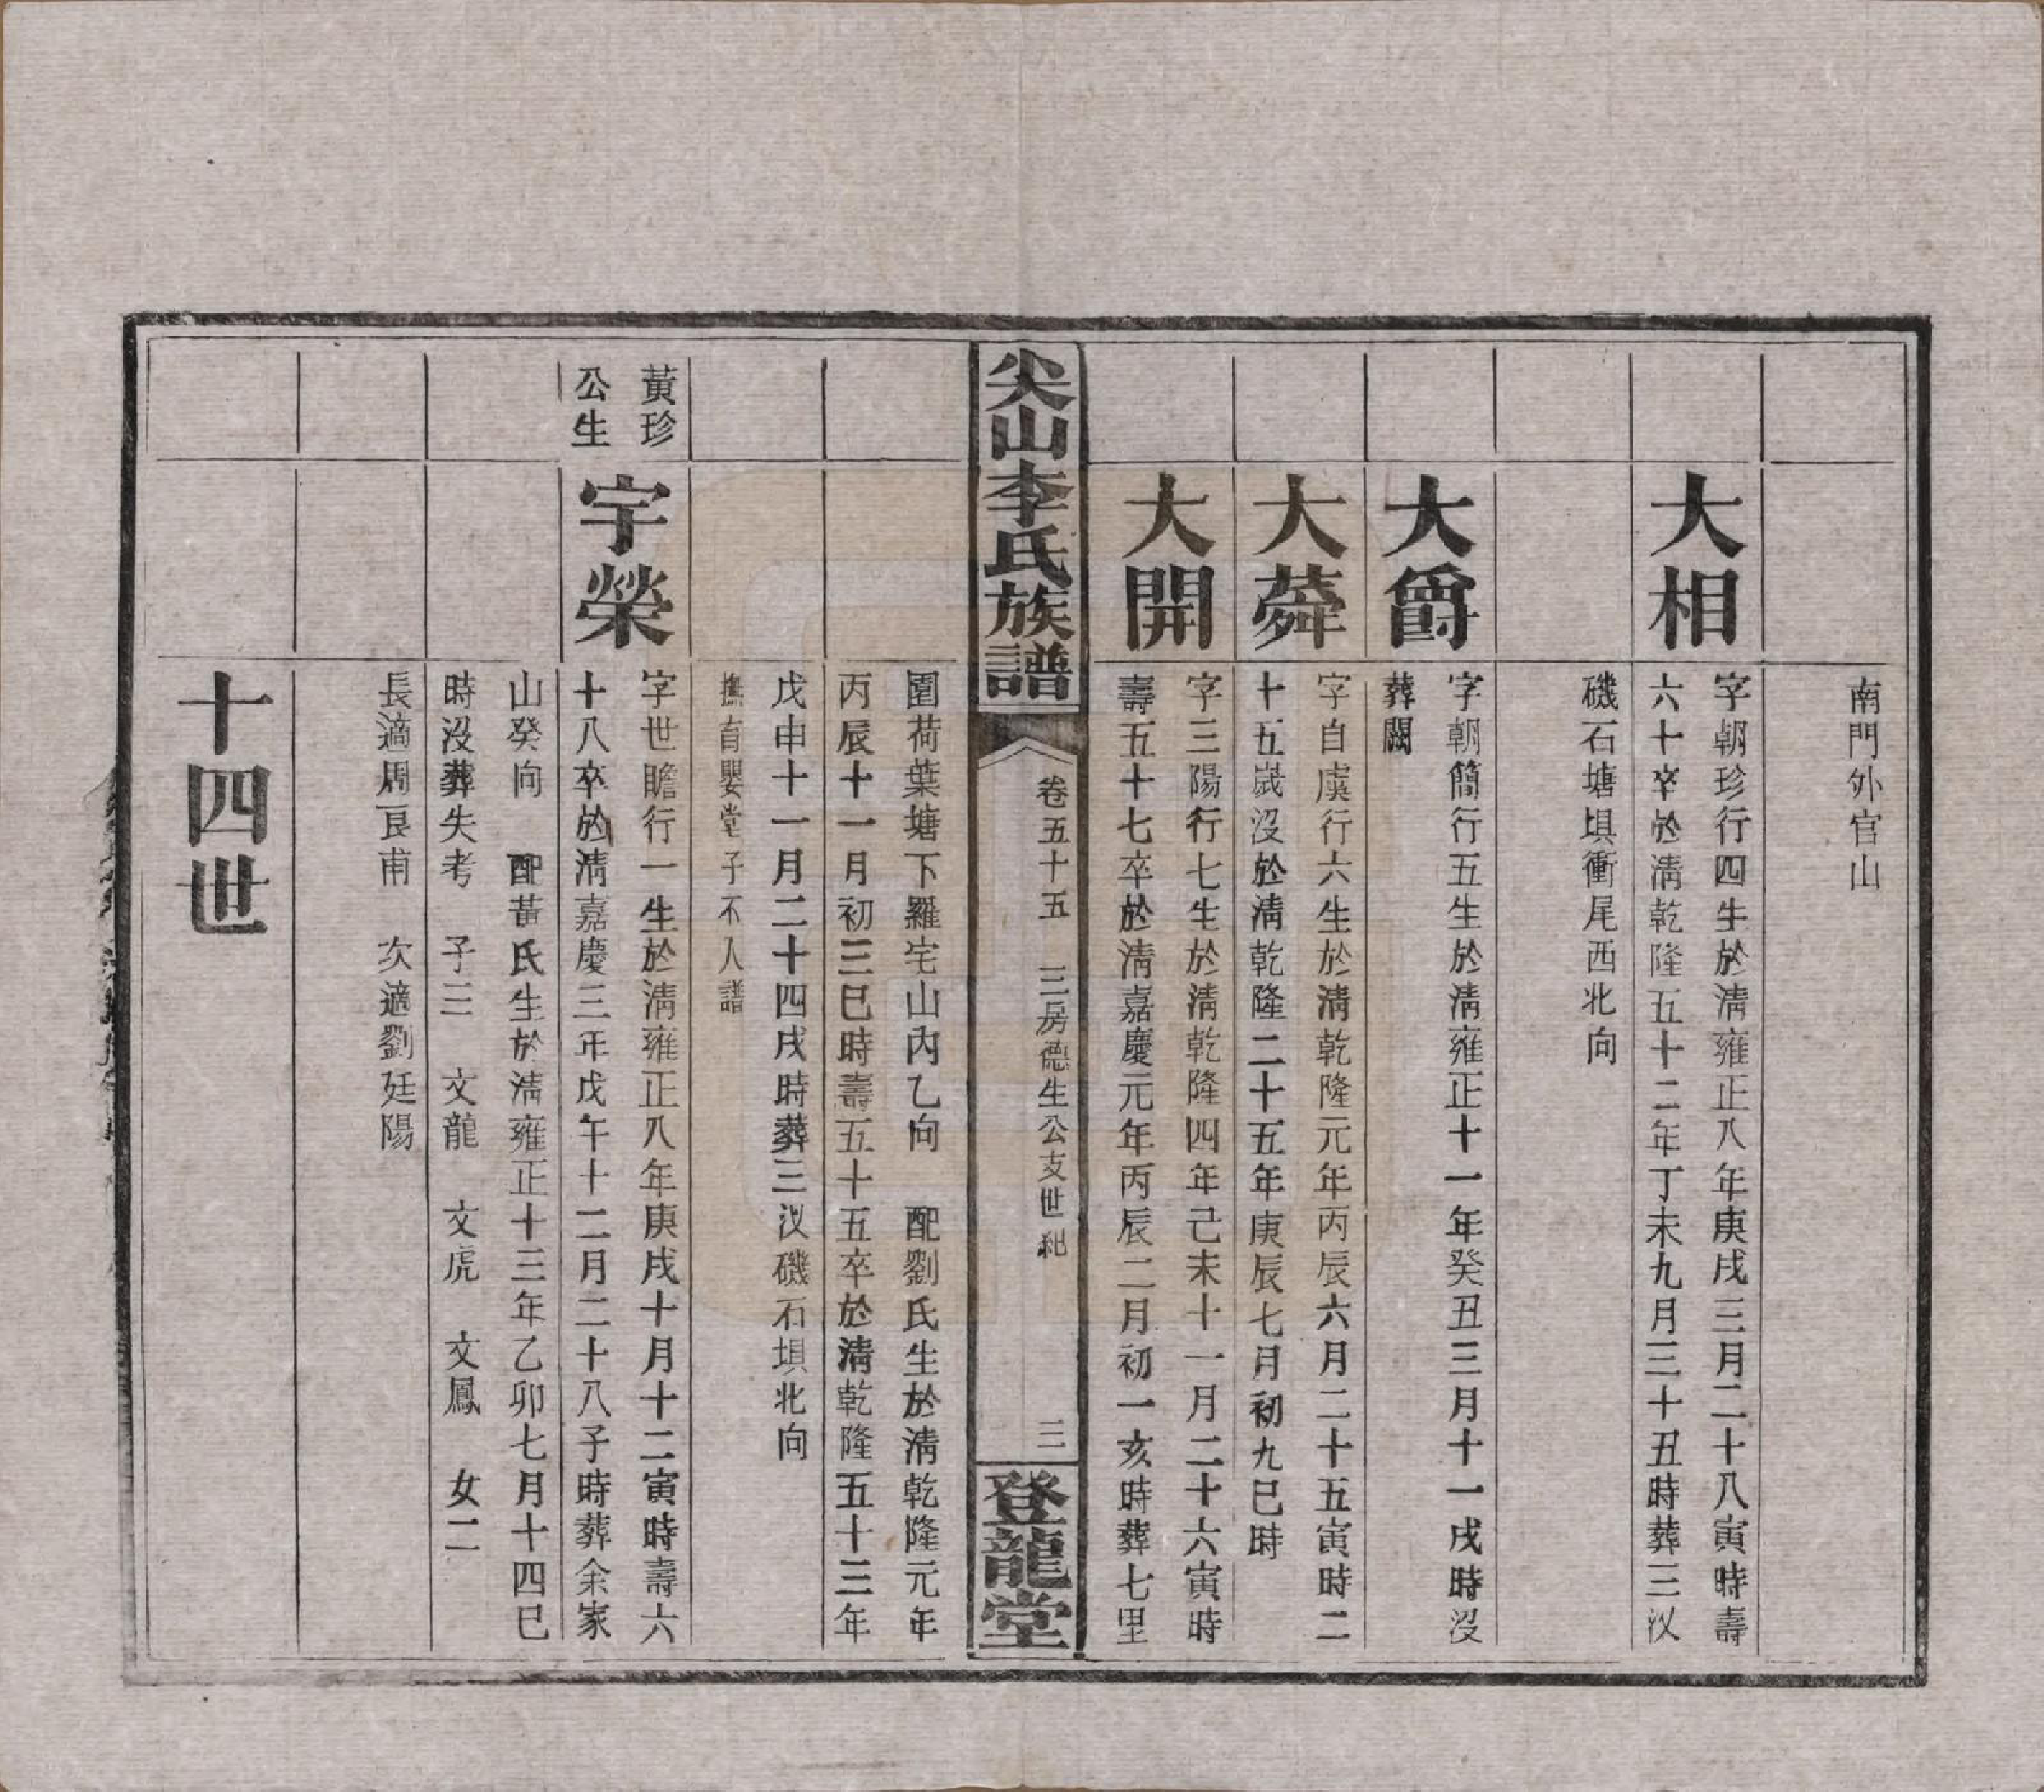 南門外官山
大相
字朝珍行四生於淸雍正八年庚戌三月二十八寅時壽
六十卒於淸乾隆五十二年丁未九月三十丑時葬三汊
磯石塘垻衝尾西北向
大爵
字朝簡行五生於淸雍正十一年癸丑三月十一戌時沒
葬闕
大蕣
字自虞行六生於淸乾隆元年丙辰六月二十五寅時二
十五嵗沒於淸乾隆二十五年庚辰七月初九巳時
大開
字三陽行七生於淸乾隆四年己未十一月二十六寅時
壽五十七卒於淸嘉慶元年丙辰二月初一亥時葬七里
尖山李氏族譜
卷五十五 三房德生公支世紀
三
登龍堂
圍荷葉塘下羅宅山內乙向 配劉氏生於淸乾隆元年
丙辰十一月初三巳時壽五十五卒於淸乾隆五十三年
戊申十一月二十四戌時葬三汊磯石垻北向
撫育嬰堂子不入譜
黃珍
公生
宇榮
字世瞻行一生於淸雍正八年庚戌十月十二寅時壽六
十八卒於淸嘉慶三年戊午十二月二十八子時葬余家
山癸向 配黃氏生於淸雍正十三年乙卯七月十四巳
時沒葬失考 子三 文龍 文虎 文鳳 女二
長適周良甫 次適劉廷陽
十四世